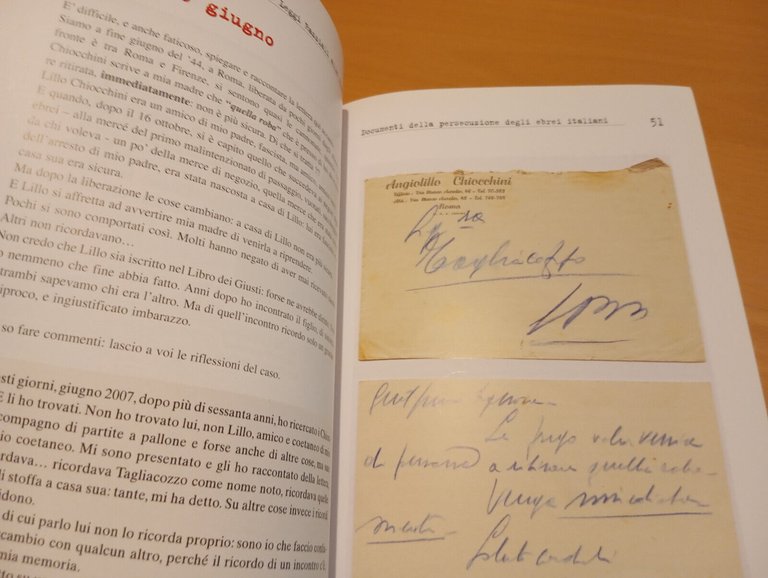 giugno
Leggi razziali
E' difficile, e anche faticoso, spiegare e raccontare la lettera qui
Siamo a fine giugno del '44, a Roma, liberata da pochi giorni
fronte è tra Roma e Firenze, si sentono quasi le cannonate
Chiocchini scrive a mia madre che "quella roba" che è presso di
re ritirata, immediatamente: non è più sicura. Di che si tratta
Lillo Chiocchini era un amico di mio padre, fascista, ma amico
E quando, dopo il 16 ottobre, si è capito quello che succedeva
ebrei – alla mercé del primo malintenzionato di passaggio, vuoi
da chi voleva - un po' della merce di negozio, quella merce che era
dell'arresto di mio padre, era stata nascosta a casa di Lillo:
casa sua era sicura.
Ma dopo la liberazione le cose cambiano: a casa di Lillo non era più
E Lillo si affretta ad avvertire mia madre di venirla a riprendere.
Pochi si sono comportati così. Molti hanno negato di aver mai ricevuto
Altri non ricordavano…
Non credo che Lillo sia iscritto nel Libro dei Giusti: forse ne avrebbe diritto.
o nemmeno che fine abbia fatto. Anni dopo ho incontrato il figlio, di
trambi sapevamo chi era l'altro. Ma di quell'incontro ricordo solo un
ciproco, e ingiustificato imbarazzo.
so fare commenti: lascio a voi le riflessioni del caso.
sti giorni, giugno 2007, dopo più di sessanta anni, ho ricercato i
E li ho trovati. Non ho trovato lui, non Lillo, amico e coetaneo di
compagno di partite a pallone e forse anche di altre cose, ma
io coetaneo. Mi sono presentato e gli ho raccontato della lettera,
rdava… ricordava Tagliacozzo come nome noto, ricordava quelle
di stoffa a casa sua: tante, mi ha detto. Su altre cose invece i ricordi
idono.
di cui parlo lui non lo ricorda proprio: sono io che faccio
cambio con qualcun altro, perché il ricordo di un incontro c'è,
ia memoria.
Documenti della persecuzione degli ebrei italiani 51
Angiolillo Chiocchini
Roma
Sig.ra
Tagliacozzo
S.P.M.
Gentilissima Signora
La prego voler venire
di persona a ritirare quella roba.
Venga immediata
mente.
Saluti cordiali